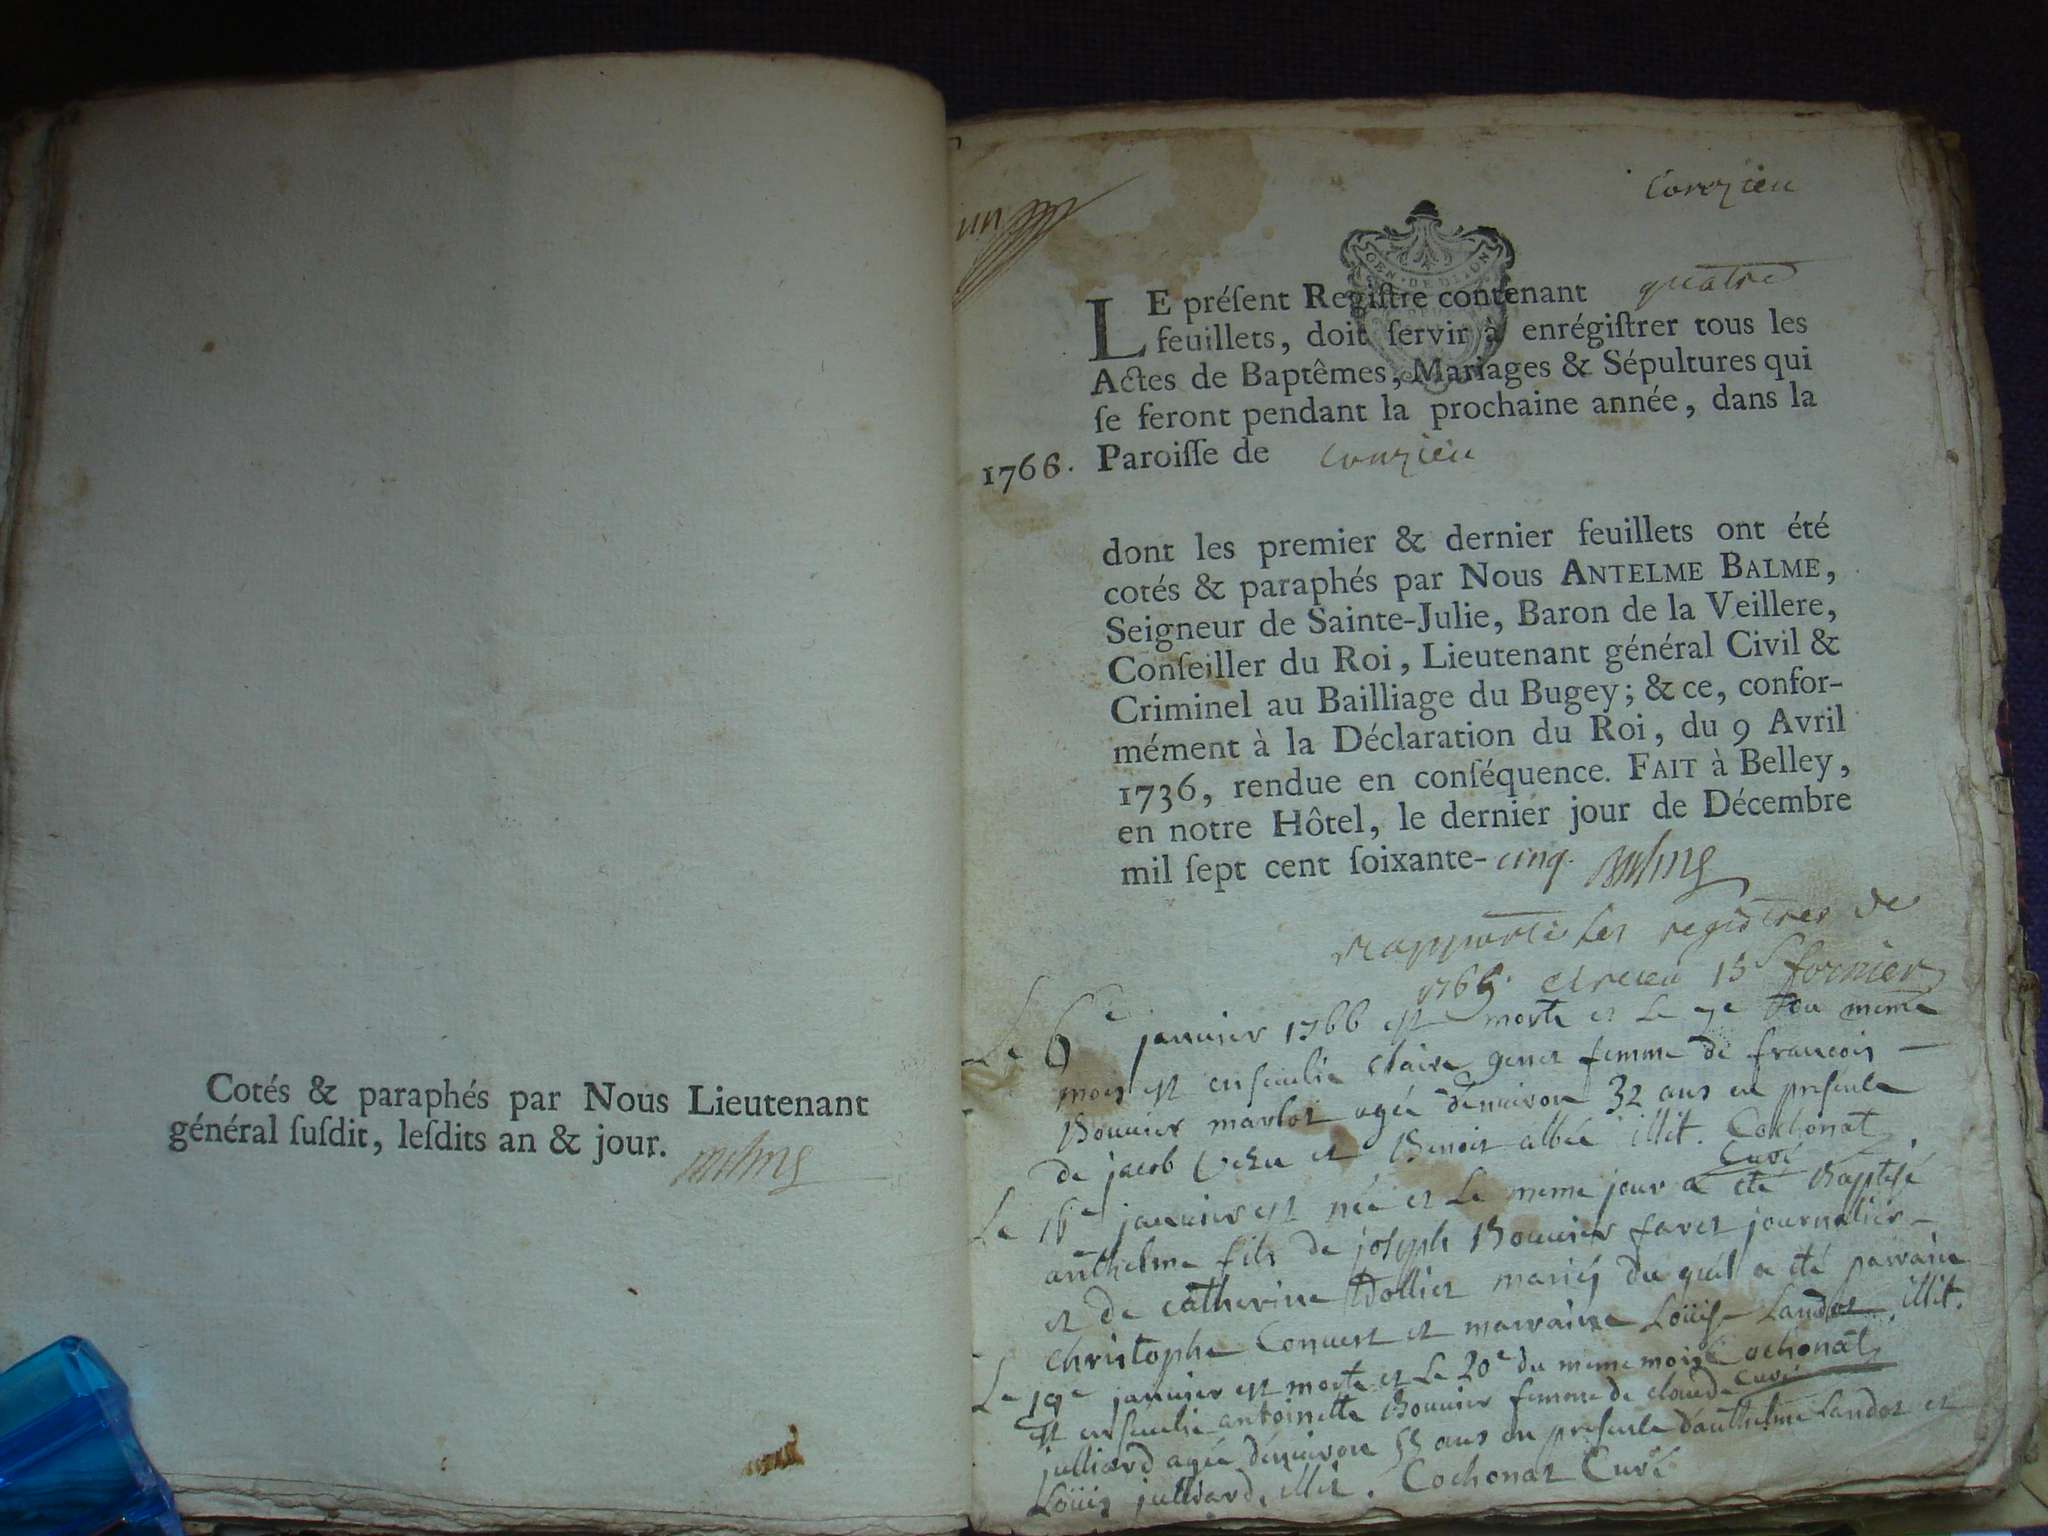 Cotés & paraphés par Nous Lieutenant
général ſuſdit, leſdits an & jour.
un
Conzieu
LE préſent Regiſtre contenant quatre
feuillets, doit ſervir à enrégiſtrer tous les
Actes de Baptêmes, Mariages & Sépultures qui
ſe feront pendant la prochaine année, dans la
1766. Paroiſſe de Conzieu
dont les premier & dernier feuillets ont été
cotés & paraphés par Nous ANTELME BALME,
Seigneur de Sainte-Julie, Baron de la Veillere,
Conſeiller du Roi, Lieutenant général Civil &
Criminel au Bailliage du Bugey; & ce, confor-
mément à la Déclaration du Roi, du 9 Avril
1736, rendue en conſéquence. FAIT à Belley,
en notre Hôtel, le dernier jour de Décembre
mil ſept cent ſoixante-cinq.
rapporté les registres de
1765. et receu 15ˢ fornier
Le 6e janvier 1766 est morte et le 7e du meme
mois est ensevelie claire genet femme de francois
Bouvier marlot agée denviron 32 ans en presence
de jacob et Benoit albée illit. Cochonat
Curé
Le 16e janvier est née et le meme jour a eté Baptisé
anthelme fils de joseph Bouvier favet journalier
et de catherine Dollier mariés du quel a eté parrain
christophe Convert et marraine Loüise Landot illit.
Cochonat
Curé
Le 19e janvier est morte et le 20e du meme mois
est ensevelie antoinette Bouvier femme de claude
julliard agée denviron 55 ans en presence d'anthelme Landot et
Loüis julliard, illit. Cochonat Curé